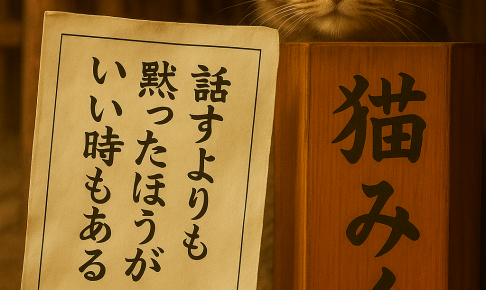 話すよりも
黙ったほうが
いい時もある
猫み